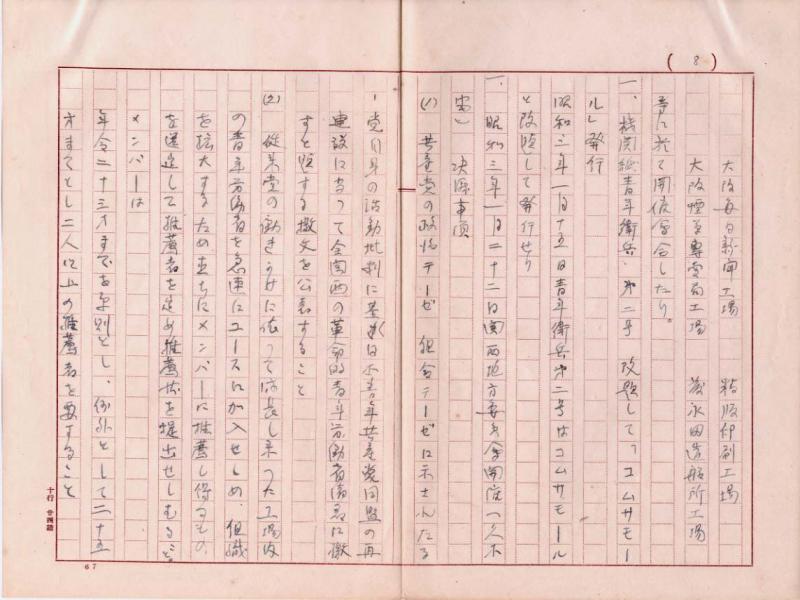 (8)
大阪毎日新聞工場 精版印刷工場
大阪煙草専売局工場 藤永田造船所工場
等に於て開催会合したり。
一、機関紙青年衛兵・第二号 改題して「コムサモー
ル」発行
昭和三年一月十五日青年衛兵第二号はコムサモール
と改題して発行せり
一、昭和三年一月二十二日関西地方委員会開催
決議事項
(1) 共産党の政治テーゼ 組合テーゼに示されたる
党自身の活動批判に基き 共産党同盟の再
建設に当って全関西の革命的青年労働者諸君に檄
すと題する檄文を公表すること
(2) 従来党の働きかけに依って成長し来った工場内
の青年労働者を急速にユースに加入せしめ、組織
を拡大するため直ちにメンバーに推薦し得るもの
を選定して推薦者を定め推薦状を提出せしむること。
メンバーは
年令二十三才までを原則とし、例外として二十五
才までとし二人以上の推薦者を要すること
十行 廿四詰
67